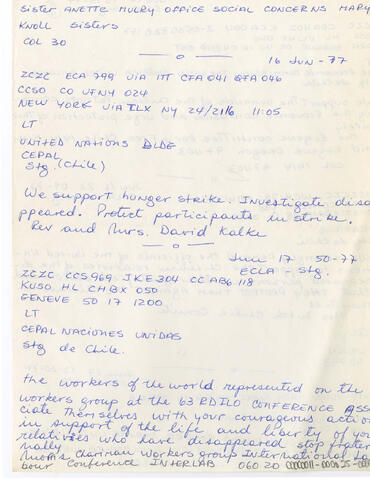 Sister ANETTE MULRY OFFICE SOCIAL CONCERNS MARY
KNOLL sisters
COL 30
— o —
16 Jun -77
ZCZC ECA 799 VIA ITT CFA 041 GFA 046
CCSO CO UFNY 024
NEW YORK VIA TLX NY 24/2116 11:05
LT
UNITED NATIONS BLDE
CEPAL
Stg. (Chile)
We support hunger strike. Investigate disa
ppeared. Protect participants in strike.
Rev and Mrs. David Kalke
— o —
Jun 17 50-77
ECLA - Stg.
ZCZC CCS969 JKE304 CC AB6 118
KUSO HL CHBX 050
GENEVE 50 17 1200
LT
CEPAL NACIONES UNIDAS
Stg de Chile.
the workers of the world represented on the
workers group at the 63 RDILO CONFERENCE ASS
CIATE themselves with your courageous actio
in support of the life and liberty of you
relatives who have disappeared stop frater
nally
Chariman Workers group International La
bour Conference INTERLAB 060 20